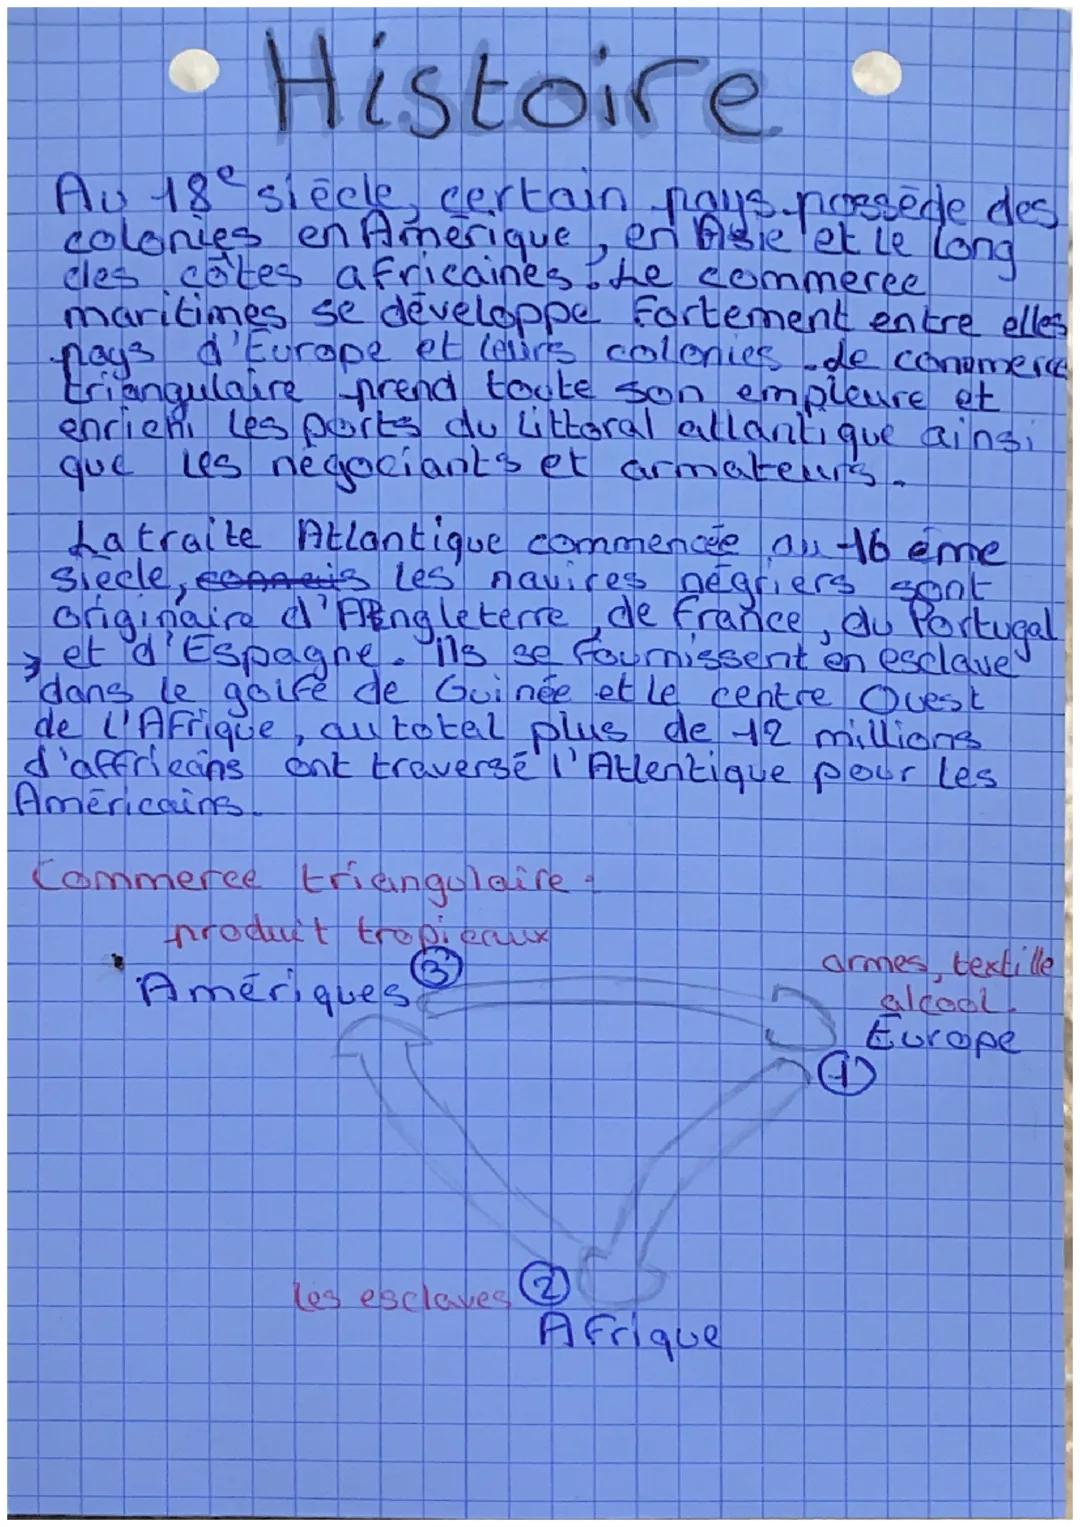 Histoire
Au 18e siècle, certain pays possède des
colonies en Amérique, en Asie et le long
des côtes africaines. Le commerce
maritimes se développe fortement entre elles
pays d'Europe et leurs colonies. de commerce
triangulaire prend toute son empleure et
enrichi les ports du littoral atlantique ainsi
que les négociants et armateurs.
La traite Atlantique commencée au 16 éme
siècle, les navires négriers sont
originaire d'Angleterre, de France, du Portugal
et d'Espagne. ils se fournissent en esclave
dans le golfe de Guinée et le centre Ouest
de l'Afrique, au total plus de 12 millions
d'affricains ont traversé l'Atlentique pour les
Américains.
Commerce triangulaire :
produit tropicaux
③
Amériques
armes, textille
alcool.
Europe
①
les esclaves ②
Afrique